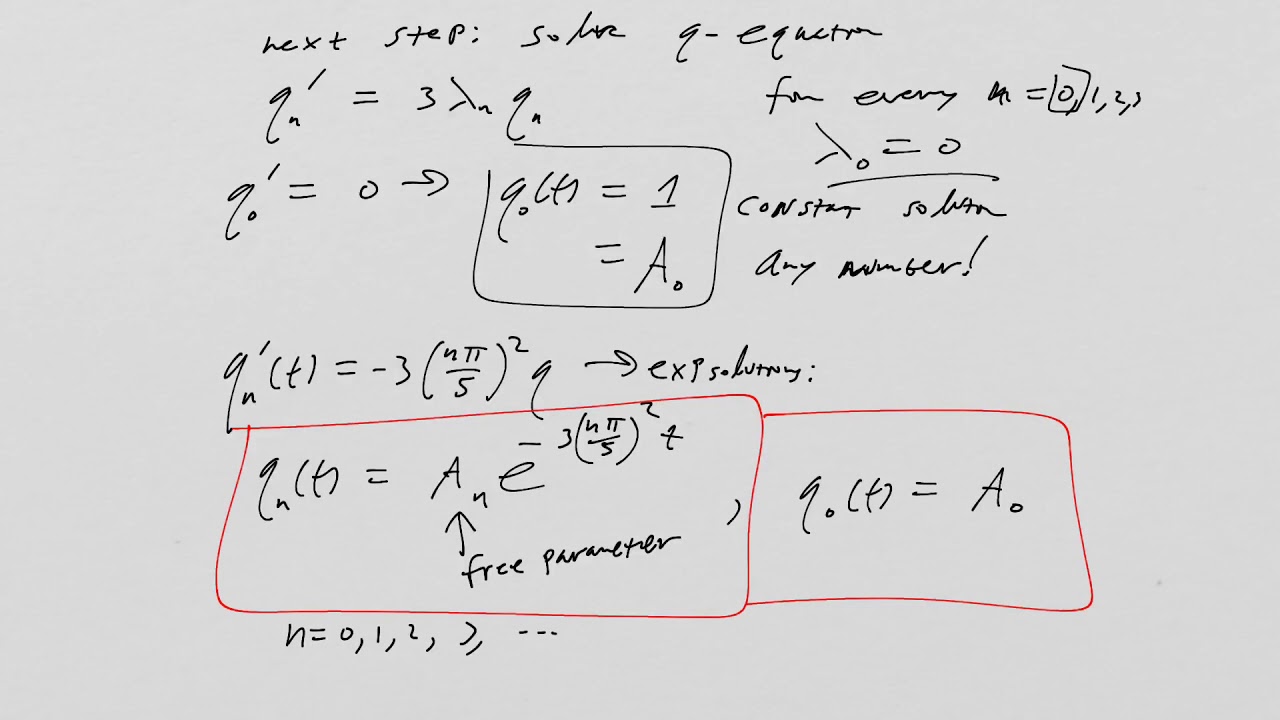 next step: solve q-equation
q_n' = 3 λ_n q_n for every n = 0, 1, 2, 3
λ_0 = 0
q_0' = 0 → q_0(t) = 1 constant solution
= A_0 any number!
q_n'(t) = -3 (nπ/5)^2 q → exp solutions:
q_n(t) = A_n e^{-3(nπ/5)^2 t} , q_0(t) = A_0
↑
free parameter
n = 0, 1, 2, 3, ...